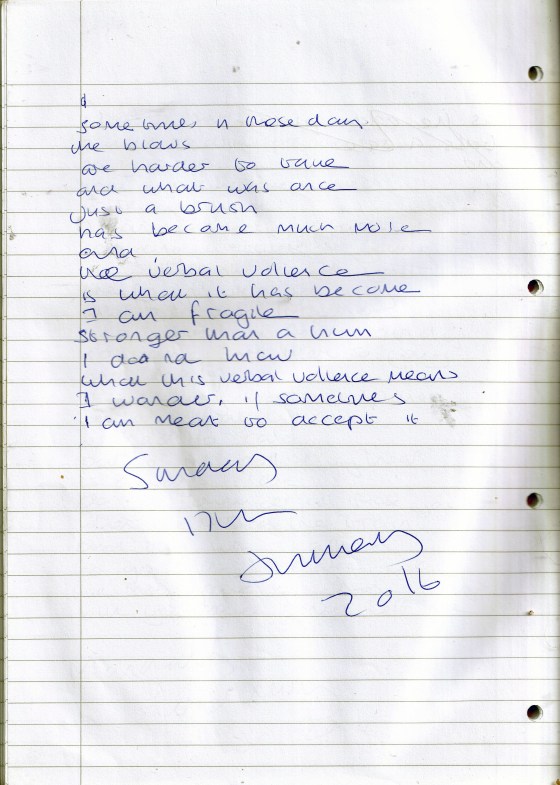 sometimes in these days
the blows
are harder to take
and what was once
just a brush
has become much more
and
like verbal violence
is what it has become
I am fragile
stronger than a
I do not know
what this verbal violence means
I wonder, if sometimes
I am meant to accept it
Sunday
17th
January
2016